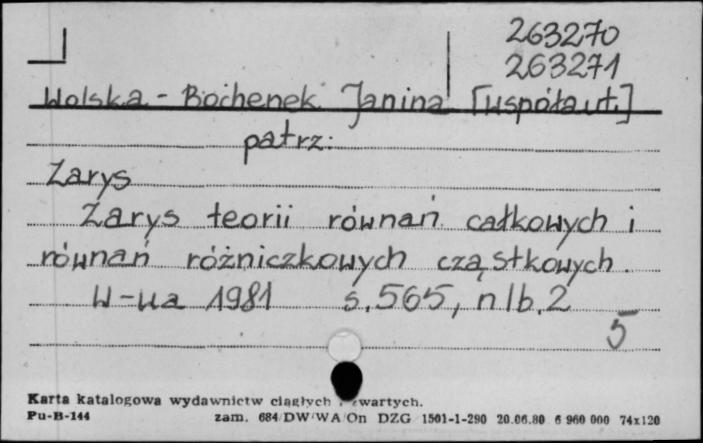 263270
263271
Wolska - Bochenek Janina [współaut.]
patrz:
Zarys
Zarys teorii równań całkowych i
równań różniczkowych cząstkowych.
W-wa 1981 s. 565, nlb. 2
5
Karta katalogowa wydawnictw ciągłych i zwartych.
Pu-B-144 zam. 684/DW/WA/On DZG 1501-1-290 20.06.80 6 960 000 74x120